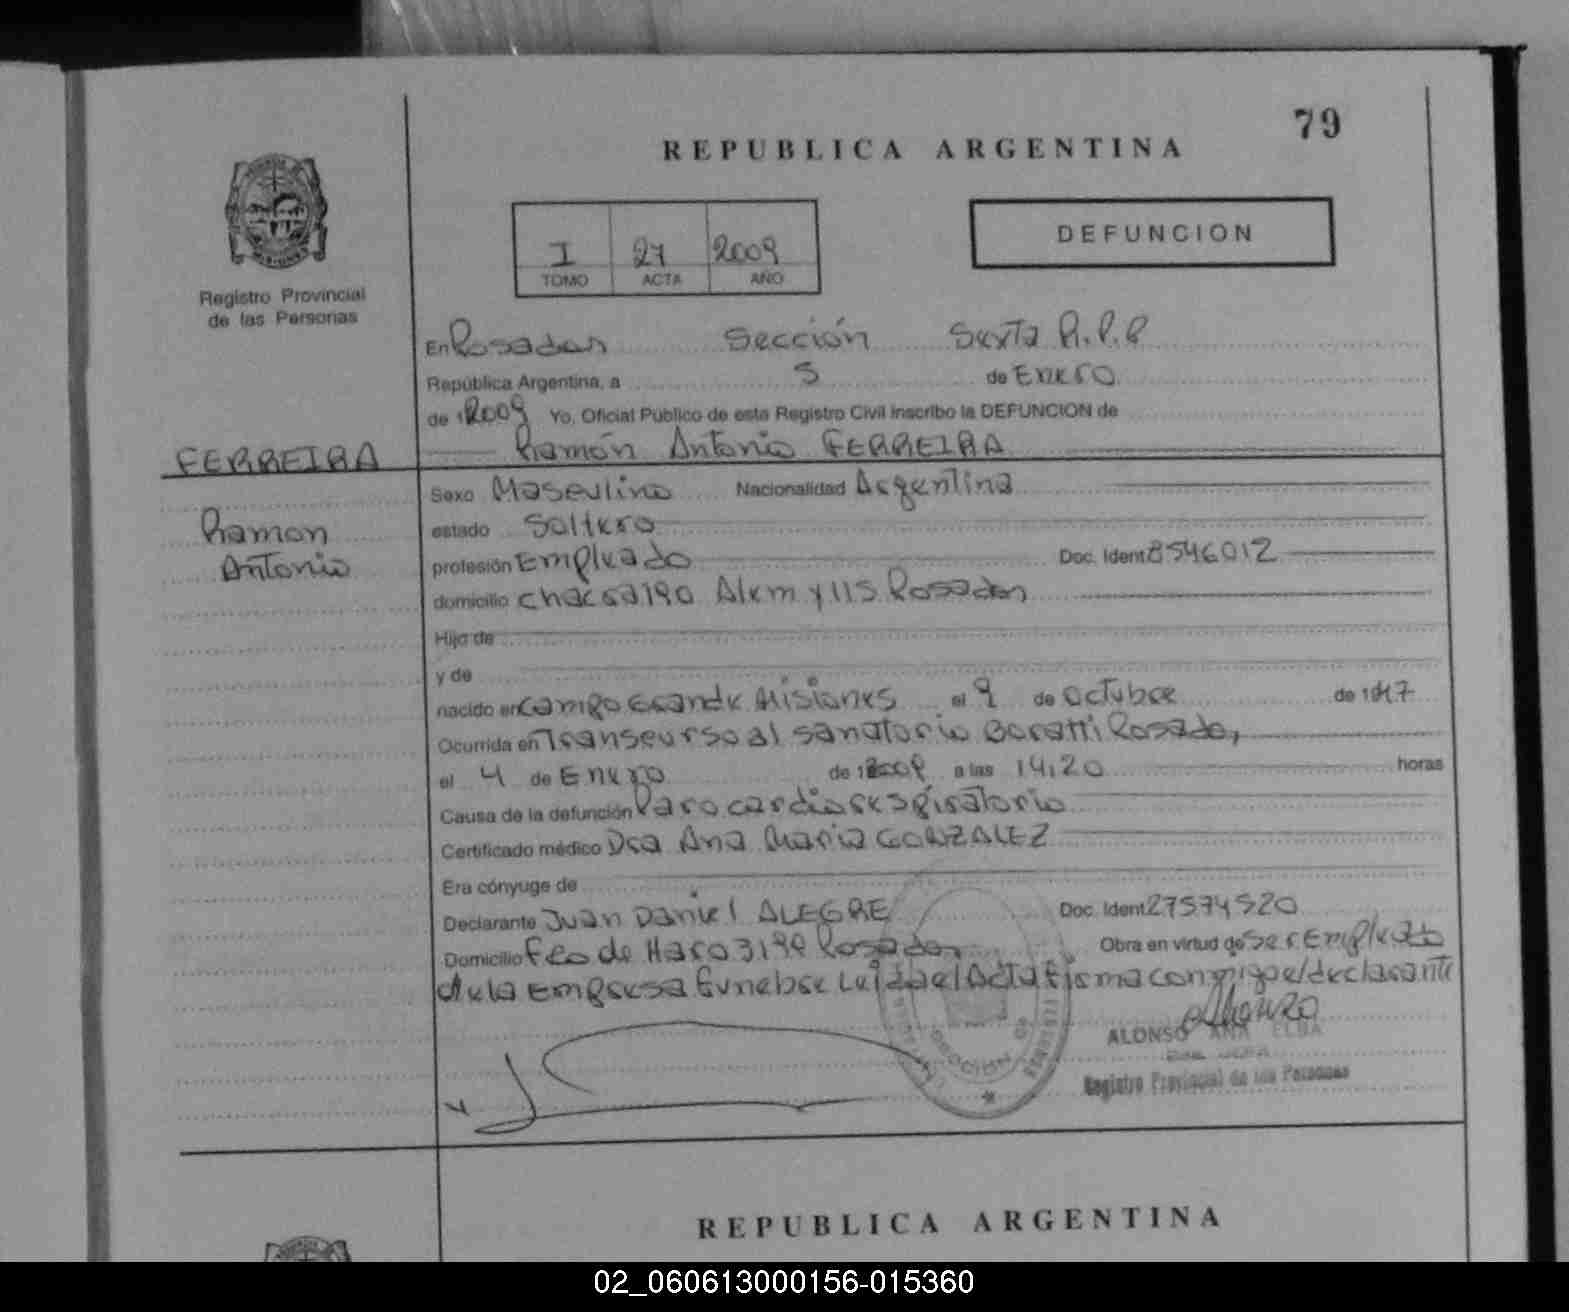 79
REPUBLICA ARGENTINA
I 27 2009
TOMO ACTA AÑO
DEFUNCION
Registro Provincial
de las Personas
En Posadas Sección Sexta R.P.P
República Argentina, a 5 de Enero
de 2009 Yo, Oficial Público de este Registro Civil inscribo la DEFUNCION de
Ramón Antonio FERREIRA
FERREIRA
Ramon
Antonio
Sexo Masculino Nacionalidad Argentina
estado Soltero
profesión Empleado Doc. Ident 8546012
domicilio chacra 190 Alem y 115 Posadas
Hijo de
y de
nacido en Campo Grande Misiones el 9 de Octubre de 1947
Ocurrida en Transcurso al sanatorio Boratti Posadas,
el 4 de Enero de 2009 a las 14,20 horas
Causa de la defunción Paro cardiorespiratorio
Certificado médico Dra Ana Maria GONZALEZ
Era cónyuge de
Declarante Juan Daniel ALEGRE Doc. Ident 27574520
Domicilio Fco de Haro 3190 Posadas, Obra en virtud de ser Empleado
de la Empresa funebre Leida el Acta firma conmigo el declarante
ALONSO ANA ELBA
Registro Provincial de las Personas
REPUBLICA ARGENTINA
02_060613000156-015360